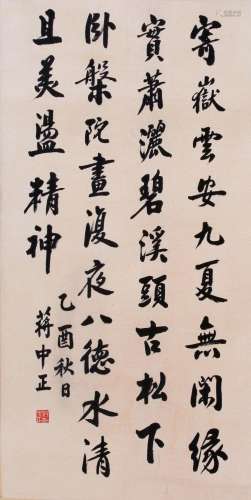 寄嶽雲安九夏無閑緣
實蕭灑碧溪頭古松下
卧槃陀晝復夜八德水清
且美盪精神
乙酉秋日
蔣中正